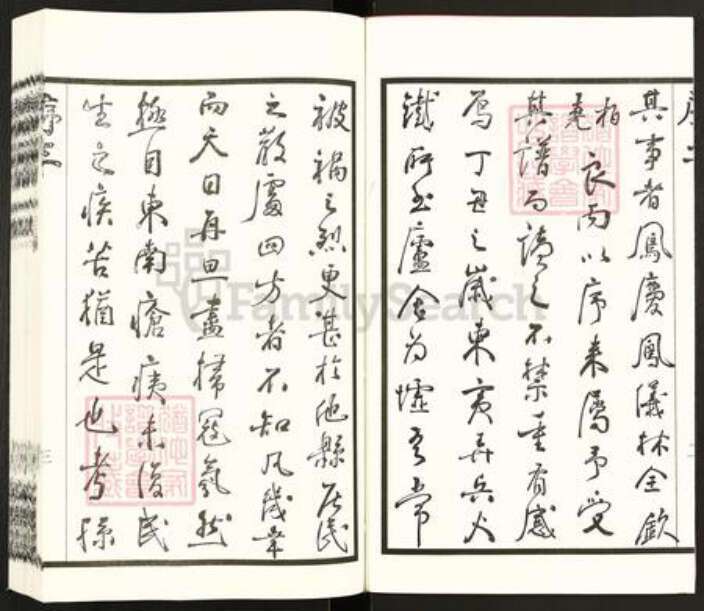 序二
其事者鳳慶鳳儀林全欽
柏
堯良丙以序來屬予受
其譜而讀之不禁重有感
焉丁丑之歲東夷弄兵火
鐵所至廬舍為墟吾常
被禍之烈更甚於他縣居民
之散處四方者不知凡幾幸
而天日再旦盡掃寇氛然
極目東南瘡痍未復民
生之疾苦猶是也考孫
序三
FamilySearch